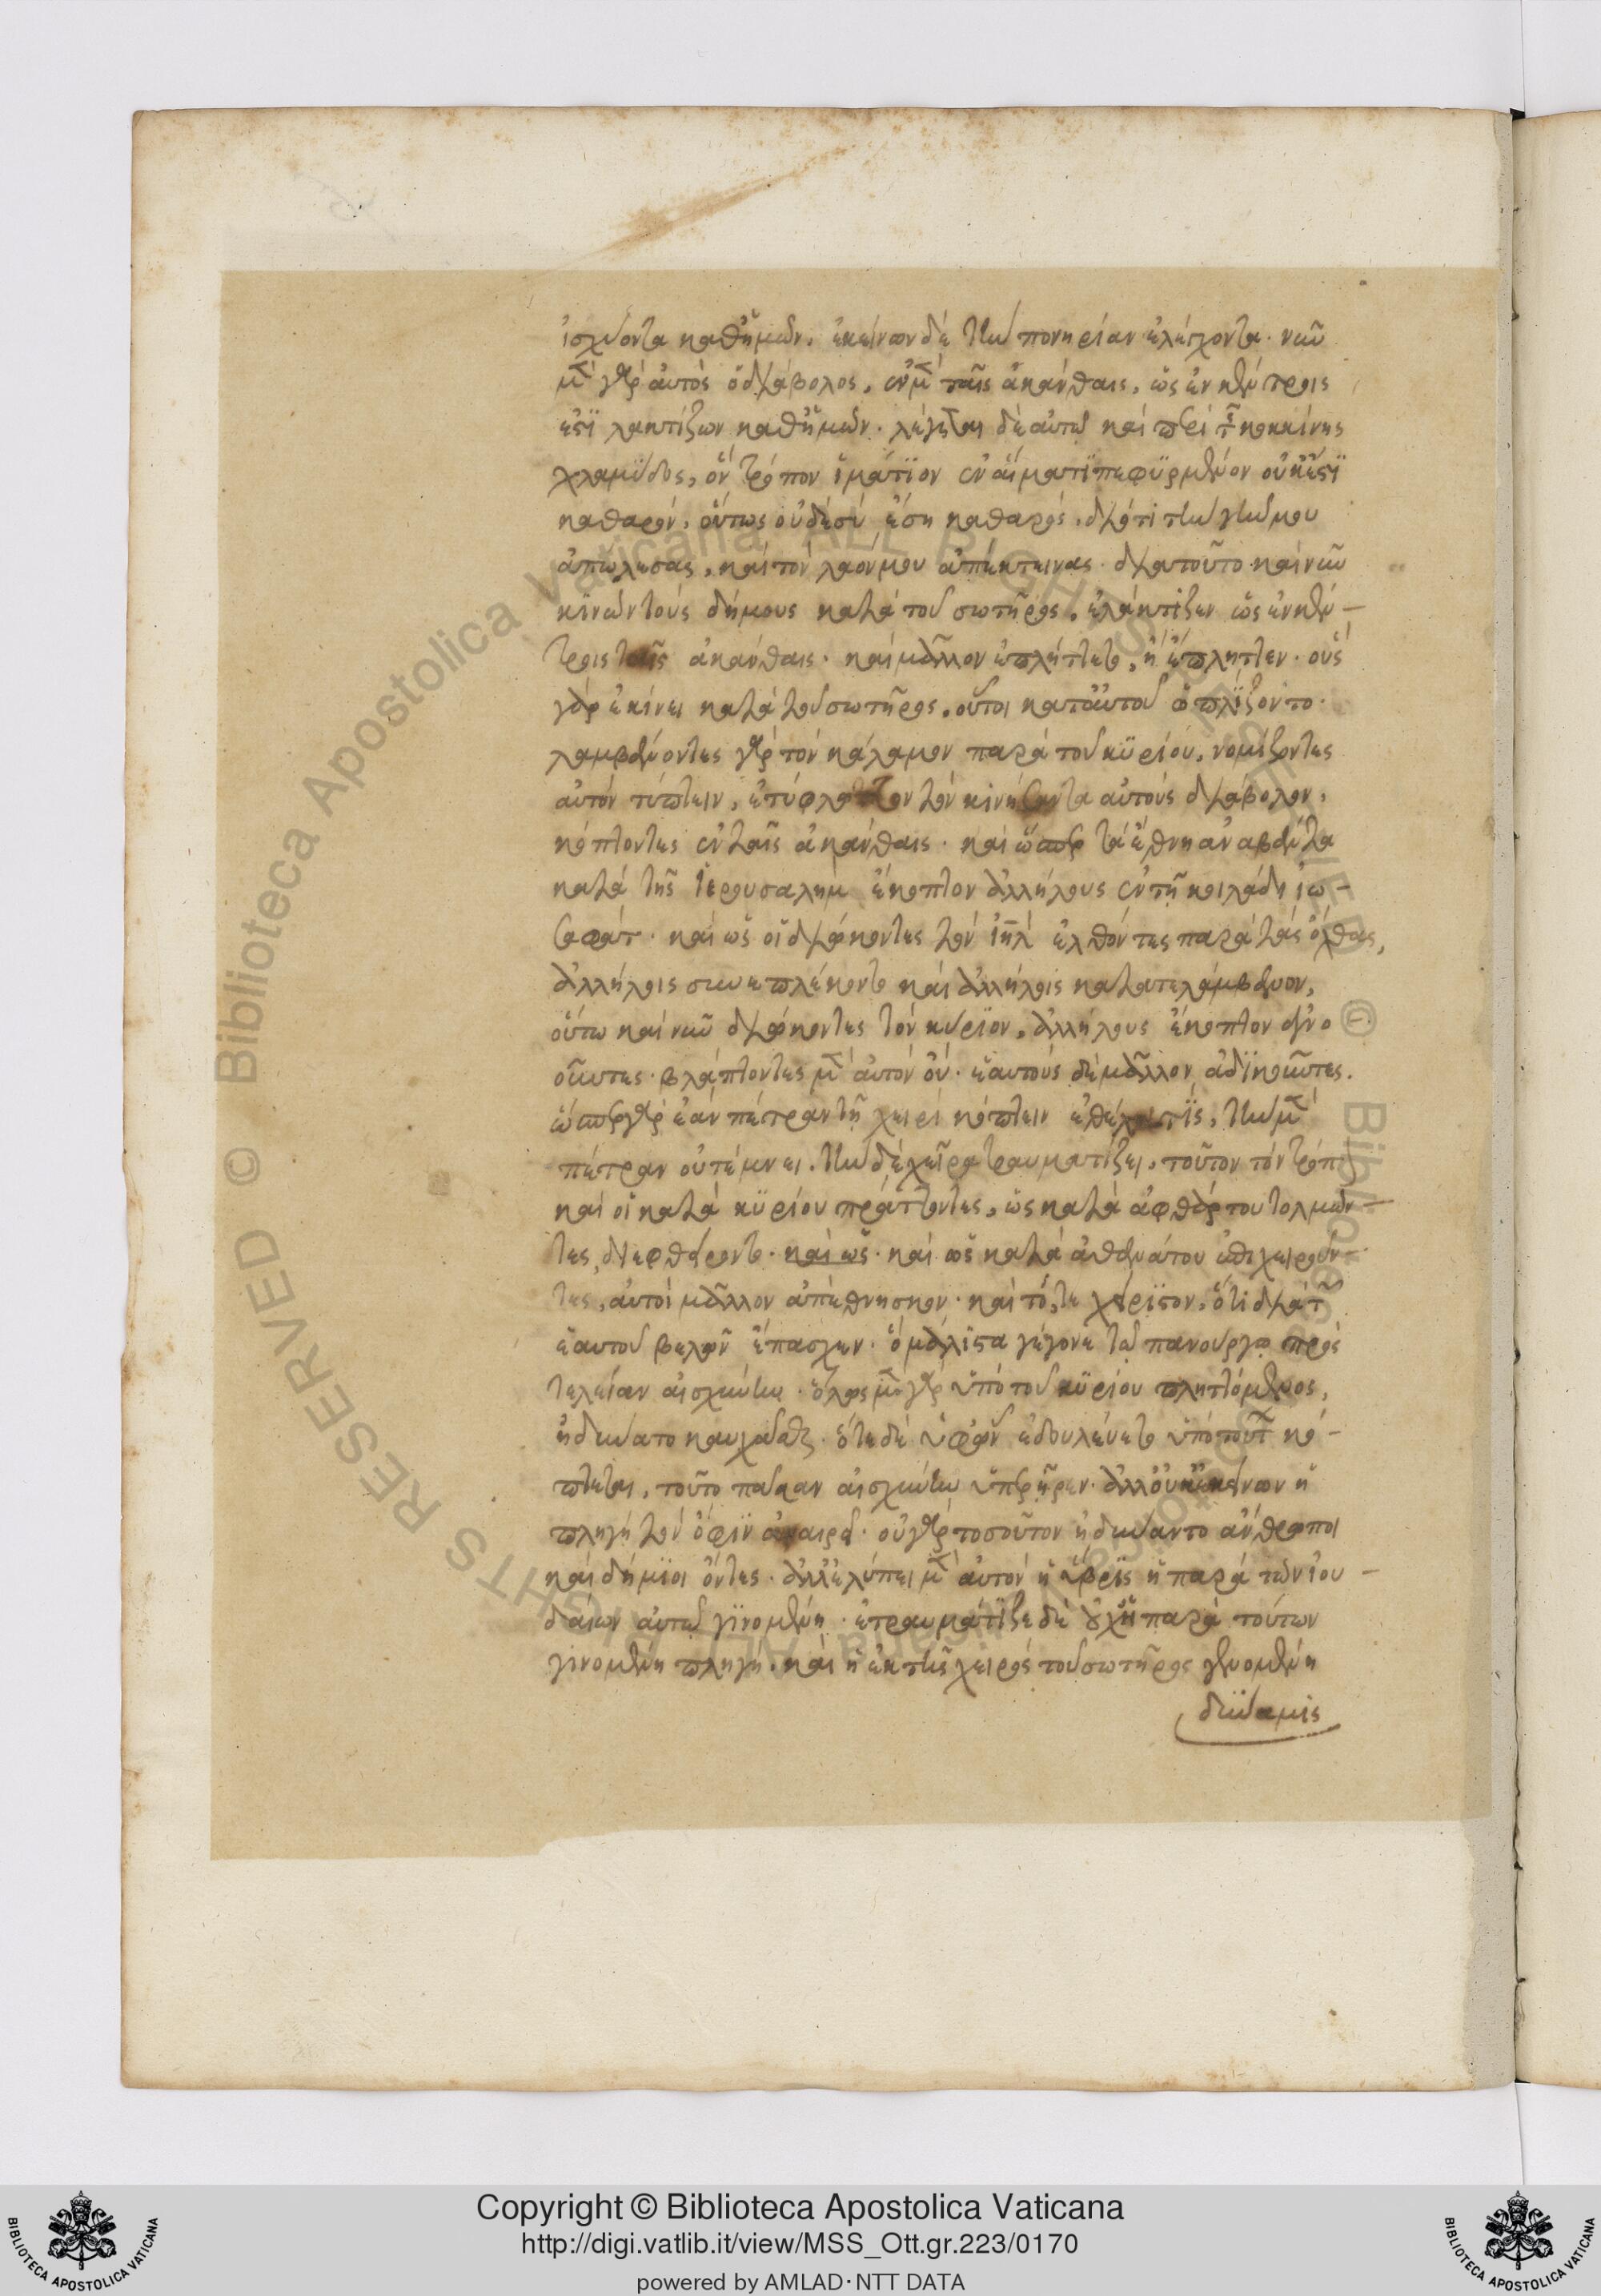 ἰσχύοντα καθ' ἡμῶν, ἐκείνων δὲ τὴν πονηρίαν ἐλέγχοντα. νῦν
μὲν γὰρ αὐτὸς ὁ διάβολος, σὺν ταῖς ἀκάνθαις, ὡς ἐν κέντροις
ἐστὶ λακτίζων καθ' ἡμῶν. λέγεται δὲ αὐτῷ καὶ περὶ τῆς κοκκίνης
χλαμύδος, ὃν τρόπον ἱμάτιον ἐν αἵματι πεφυρμένον οὐκ ἔστι
καθαρόν, οὕτως οὐδὲ σὺ ἔσῃ καθαρός, διότι τὴν γῆν μου
ἀπώλεσας, καὶ τὸν λαόν μου ἀπέκτεινας. διὰ τοῦτο καὶ νῦν
κινῶν τοὺς δήμους κατὰ τοῦ σωτῆρος, ἐλάκτιζεν ὡς ἐν κέν-
τροις ταῖς ἀκάνθαις. καὶ μᾶλλον ἐπλήττετο, ἢ ἔπληττεν. οὓς
γὰρ ἐκίνει κατὰ τοῦ σωτῆρος, οὗτοι κατ' αὐτοῦ ὡπλίζοντο.
λαμβάνοντες γὰρ τὸν κάλαμον παρὰ τοῦ κυρίου, νομίζοντες
αὐτὸν τύπτειν, ἐτύφλωττον τὸν κινήσαντα αὐτοὺς διάβολον,
κόπτοντες ἐν ταῖς ἀκάνθαις. καὶ ὥσπερ τὰ ἔθνη ἀναβάντα
κατὰ τῆς Ἱερουσαλὴμ ἔκοπτον ἀλλήλους ἐν τῇ κοιλάδι ἰω-
σαφάτ. καὶ ὡς οἱ διώκοντες τὸν ἰηλ ἐλθόντες παρὰ τὰς ὄχθας,
ἀλλήλοις συνεπλέκοντο καὶ ἀλλήλοις κατατελάμβανον,
οὕτω καὶ νῦν διώκοντες τὸν κύριον, ἀλλήλους ἔκοπτον ἀγνο
οῦντες. βλάπτοντες μὲν αὐτὸν οὐ. ἑαυτοὺς δὲ μᾶλλον ἀδικοῦντες.
ὥσπερ γὰρ ἐὰν πέτραν τῇ χειρὶ κόπτειν ἐθέλῃ τις, τὴν μὲν
πέτραν οὐ τέμνει. τὴν δὲ χεῖρα τραυματίζει, τοῦτον τὸν τρόπον
καὶ οἱ κατὰ κυρίου πράττοντες, ὡς κατὰ ἀφθάρτου τολμῶν-
τες, διεφθείροντο. καὶ ὡς. καὶ ὡς κατὰ ἀθανάτου ἐπιχειροῦν-
τες, αὐτοὶ μᾶλλον ἀπέθνησκον. καὶ τό, τε χείριστον, ὅτι διὰ τῶν
ἑαυτοῦ βελῶν ἔπασχεν. ὃ μάλιστα γέγονε τῷ πανούργῳ πρὸς
τελείαν αἰσχύνην. ὅλως μὲν γὰρ ὑπὸ τοῦ κυρίου πληττόμενος,
ἠδύνατο καυχᾶσθαι. ὅτε δὲ ὑφ' ὧν ἐδουλεύετο ὑπὸ τούτων κό-
πτεται, τοῦτο πᾶσαν αἰσχύνην ὑπερῆρεν. ἀλλ' οὐκ ἐκείνων ἡ
πληγὴ τὸν ὄφιν ἀναιρεῖ. οὐ γὰρ τοσοῦτον ἠδύναντο ἄνθρωποι
καὶ δήμιοι ὄντες. ἀλλ' ἐλύπει μὲν αὐτὸν ἡ ὕβρις ἡ παρὰ τῶν ἰου-
δαίων αὐτῷ γινομένη. ἐτραυμάτιζε δὲ οὐχ ἡ παρὰ τούτων
γινομένη πληγή. καὶ ἡ ἐκ τῆς χειρὸς τοῦ σωτῆρος γενομένη
δύναμις
Copyright © Biblioteca Apostolica Vaticana
http://digi.vatlib.it/view/MSS_Ott.gr.223/0170
powered by AMLAD·NTT DATA